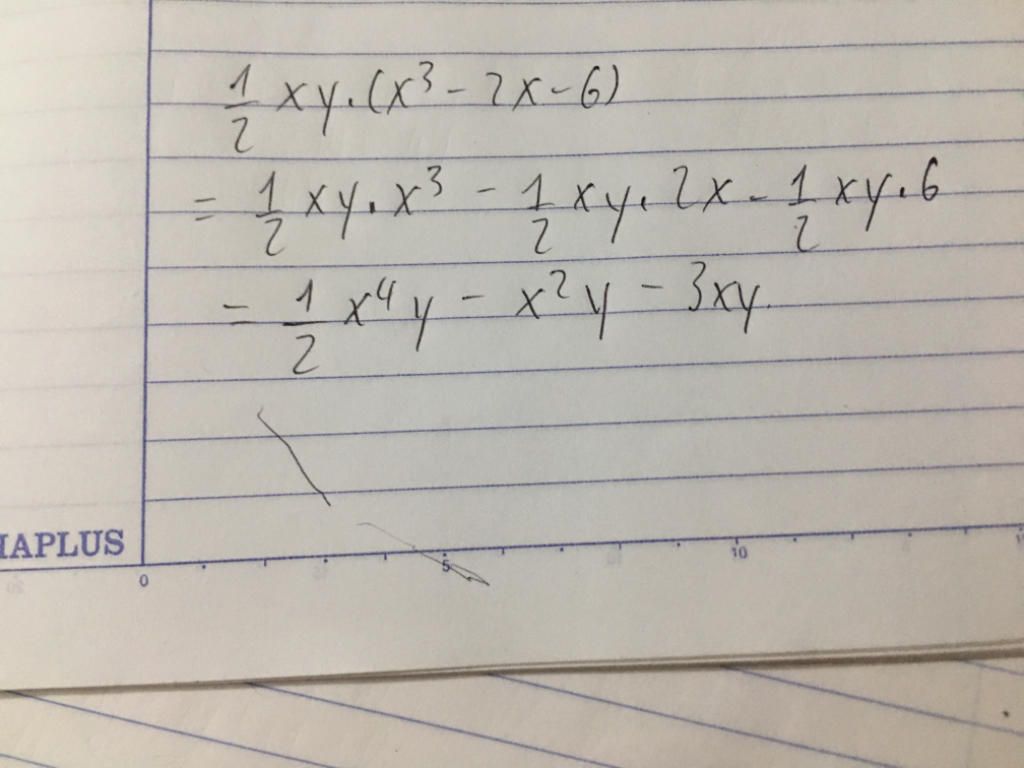 1/2 xy.(x³ - 2x - 6)
= 1/2 xy.x³ - 1/2 xy.2x - 1/2 xy.6
= 1/2 x⁴y - x²y - 3xy.
IAPLUS
0 5 10